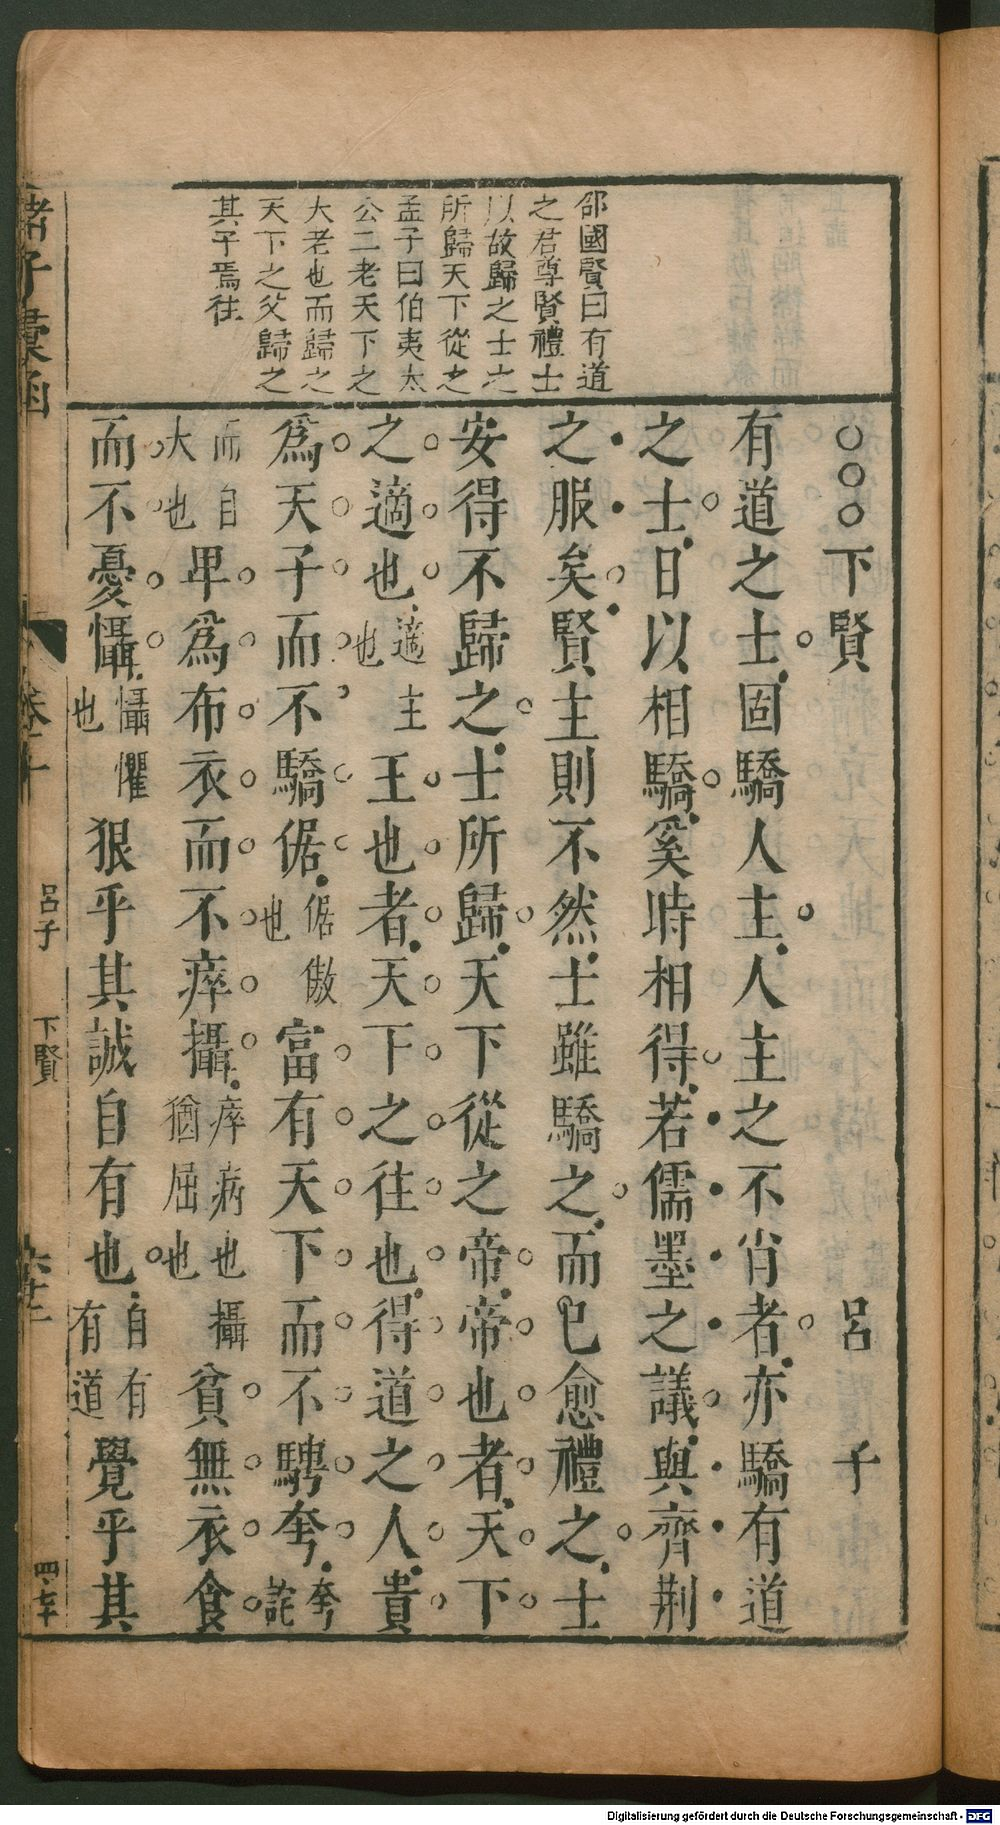 邵國賢曰有道
之君尊賢禮士
以故歸之士之
所歸天下從之
孟子曰伯夷太
公二老天下之
大老也而歸之
天下之父歸之
其子焉往
○○○下賢 呂子
有道之士固驕人主人主之不肖者亦驕有道
之士日以相驕奚時相得若儒墨之議與齊荆
之服矣賢主則不然士雖驕之而已愈禮之士
安得不歸之士所歸天下從之帝帝也者天下
之適也適主也王也者天下之往也得道之人貴
為天子而不驕倨倨傲也富有天下而不騁夸夸詫
而自大也卑為布衣而不瘁攝瘁病也攝猶屈也貧無衣食
而不憂懾懾懼也狠乎其誠自有也自有有道覺乎其
諸子彙函
卷十
呂子
下賢
四七十
Digitalisierung gefördert durch die Deutsche Forschungsgemeinschaft - DFG